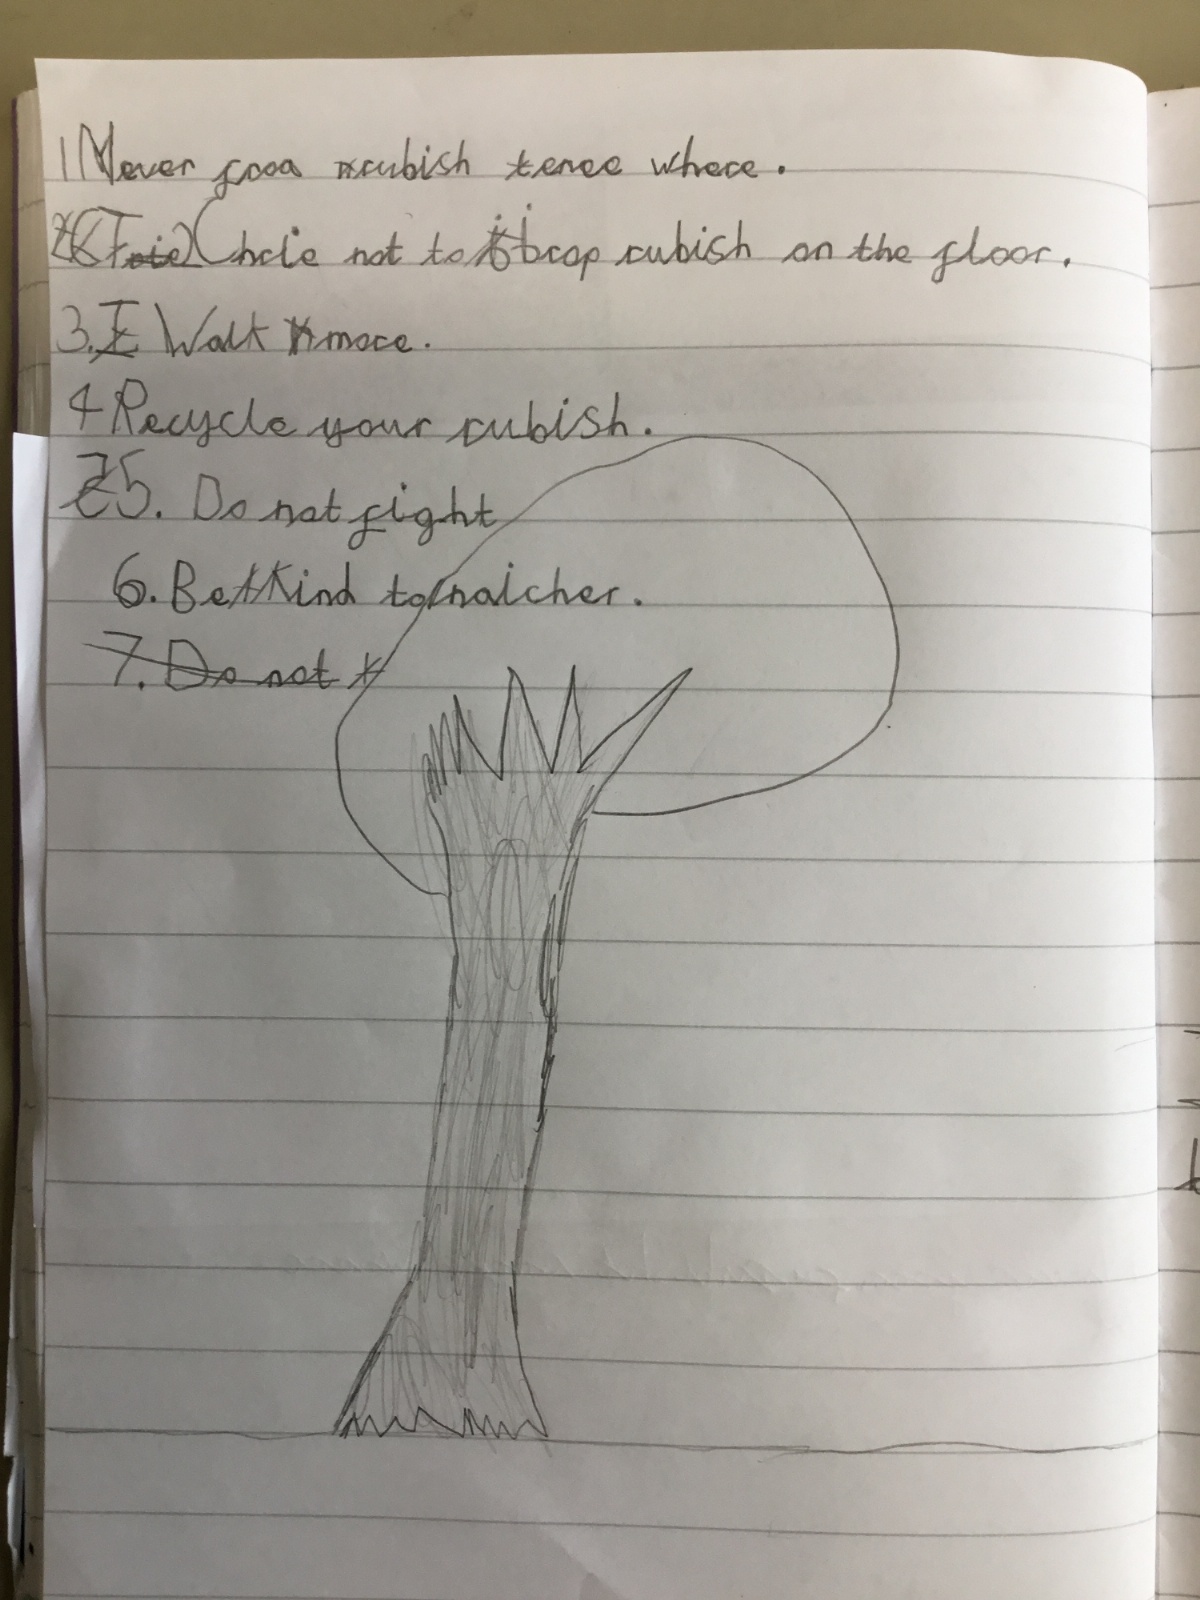 1 Never froa rubish enee where.
2 Chcie not to drop rubish on the floor.
3. Walk more.
4 Recycle your rubish.
5. Do not fight
6. Be Kind to natcher.
7. Do not